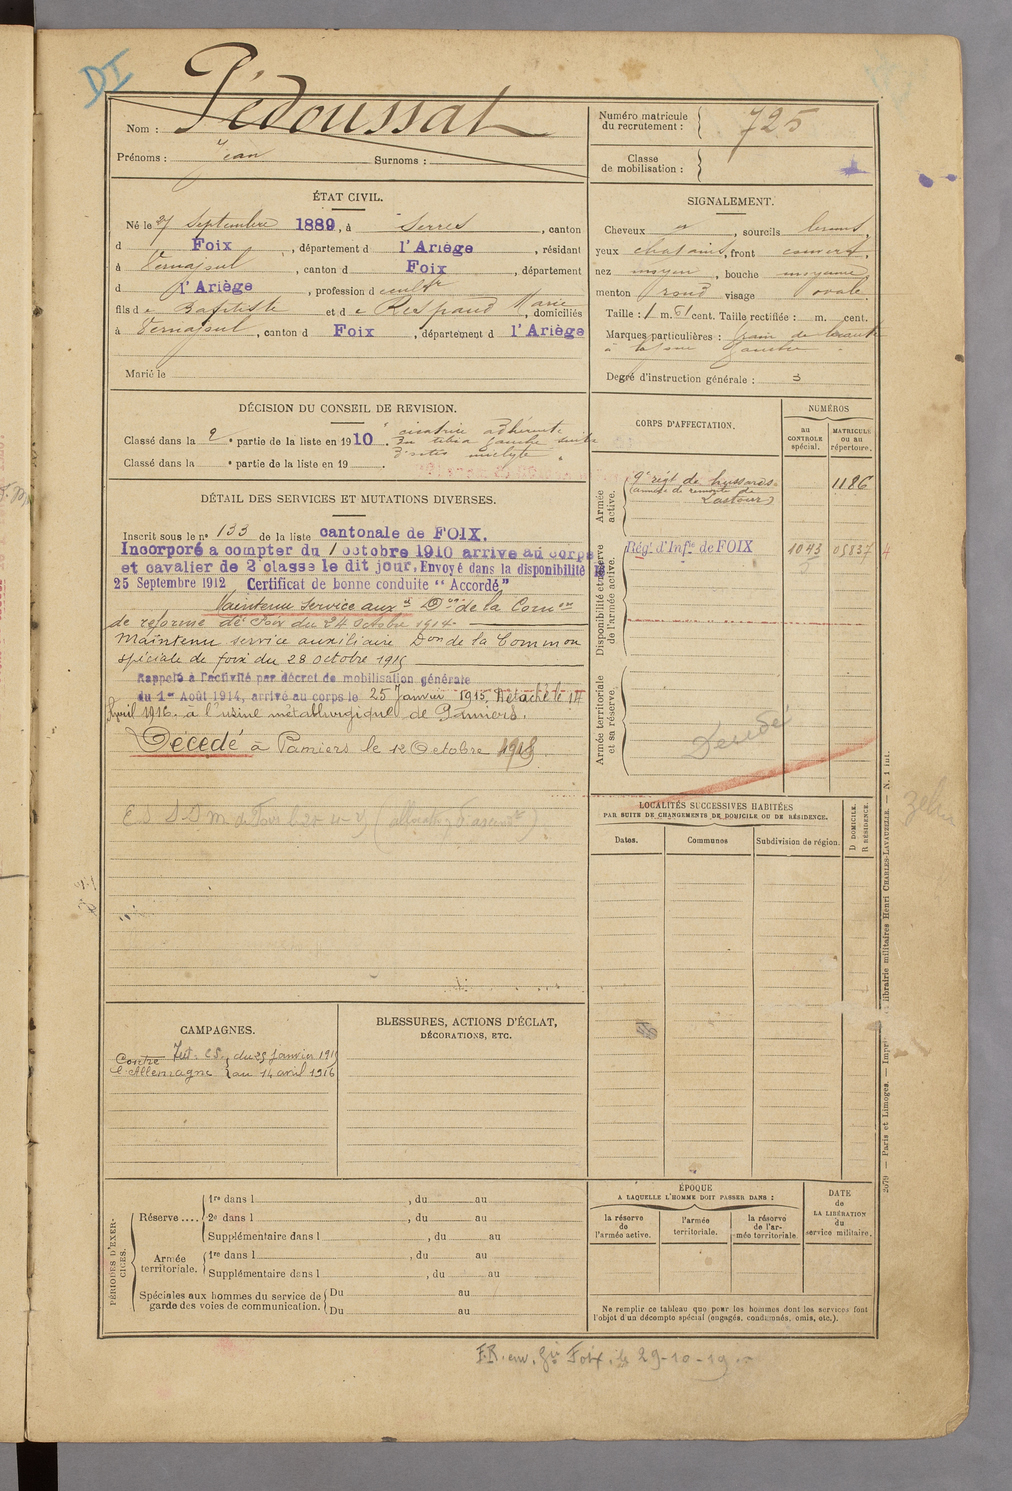 DI
Nom : Pédoussat
Prénoms : Jean Surnoms :
Numéro matricule du recrutement : 725
Classe de mobilisation :
ÉTAT CIVIL.
Né le 27 Septembre 1889, à Serres, canton
d Foix, département d l'Ariège, résidant
à Vernajoul, canton d Foix, département
d l'Ariège, profession d cultr
fils de Baptiste et de Respaud Marie, domiciliés
à Vernajoul, canton d Foix, département d l'Ariège
Marié le
SIGNALEMENT.
Cheveux et, sourcils bruns,
yeux chatains, front couvert,
nez moyen, bouche moyenne
menton rond visage ovale
Taille : 1 m. 61 cent. Taille rectifiée : m. cent.
Marques particulières : grain de beauté
à la joue gauche
Degré d'instruction générale : 3
DÉCISION DU CONSEIL DE REVISION.
Classé dans la 2e partie de la liste en 1910. cicatrice adhérente
du tibia gauche suite
d'ostéo myélyte
Classé dans la e partie de la liste en 19
DÉTAIL DES SERVICES ET MUTATIONS DIVERSES.
Inscrit sous le n° 133 de la liste cantonale de FOIX.
Incorporé a compter du 1 octobre 1910 arrive au corps
et cavalier de 2e classe le dit jour. Envoyé dans la disponibilité le
25 Septembre 1912 Certificat de bonne conduite "Accordé"
Maintenu service auxre Don de la Comon
de reforme de Foix du 24 octobre 1914
Maintenu service auxiliaire Don de la Common
spéciale de foix du 28 octobre 1915
Rappelé à l'activité par décret de mobilisation générale
du 1er Août 1914, arrivé au corps le 25 Janvier 1915. Détaché le 14
Avril 1916. à l'usine métallurgique de Pamiers.
Décédé à Pamiers le 12 Octobre 1918.
CORPS D'AFFECTATION.
NUMÉROS
au CONTROLE spécial.
MATRICULE ou au répertoire.
Armée active.
9e régt de hussards 1186
(annexe de remonte de
Lastours)
Disponibilité et réserve de l'armée active.
Régt d'Infie de FOIX 1043 05837
Armée territoriale et sa réserve.
Décédé
LOCALITÉS SUCCESSIVES HABITÉES
PAR SUITE DE CHANGEMENTS DE DOMICILE OU DE RÉSIDENCE.
Dates. Communes Subdivision de région. D DOMICILE. R RÉSIDENCE.
CAMPAGNES.
Contre Int. CS., du 25 Janvier 1915
l'Allemagne au 14 avril 1916
BLESSURES, ACTIONS D'ÉCLAT,
DÉCORATIONS, ETC.
PÉRIODES D'EXERCICES.
Réserve....
1re dans l , du au
2e dans l , du au
Supplémentaire dans l , du au
Armée territoriale.
1re dans l , du au
Supplémentaire dans l , du au
Spéciales aux hommes du service de garde des voies de communication.
Du au
Du au
ÉPOQUE
A LAQUELLE L'HOMME DOIT PASSER DANS :
la réserve de l'armée active.
l'armée territoriale.
la réserve de l'armée territoriale.
DATE de LA LIBÉRATION du service militaire.
Ne remplir ce tableau que pour les hommes dont les services font
l'objet d'un décompte spécial (engagés, condamnés, omis, etc.).
2679 — Paris et Limoges. — Impr librairie militaires Henri CHARLES-LAVAUZELLE. — N. 1 int.
F.R. env. Foix, le 29-10-19